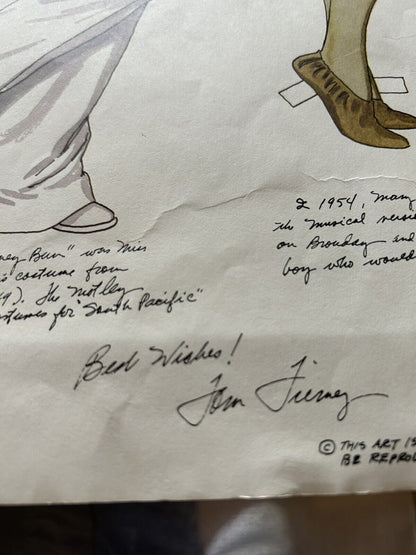 ney Bun" was Miss
's costume from
9). The Motley
stumes for "South Pacific"
In 1954, Mary
the musical versi
on Broadway and
boy who would
Best Wishes!
Tom Tierney
© THIS ART IS
BE REPRO